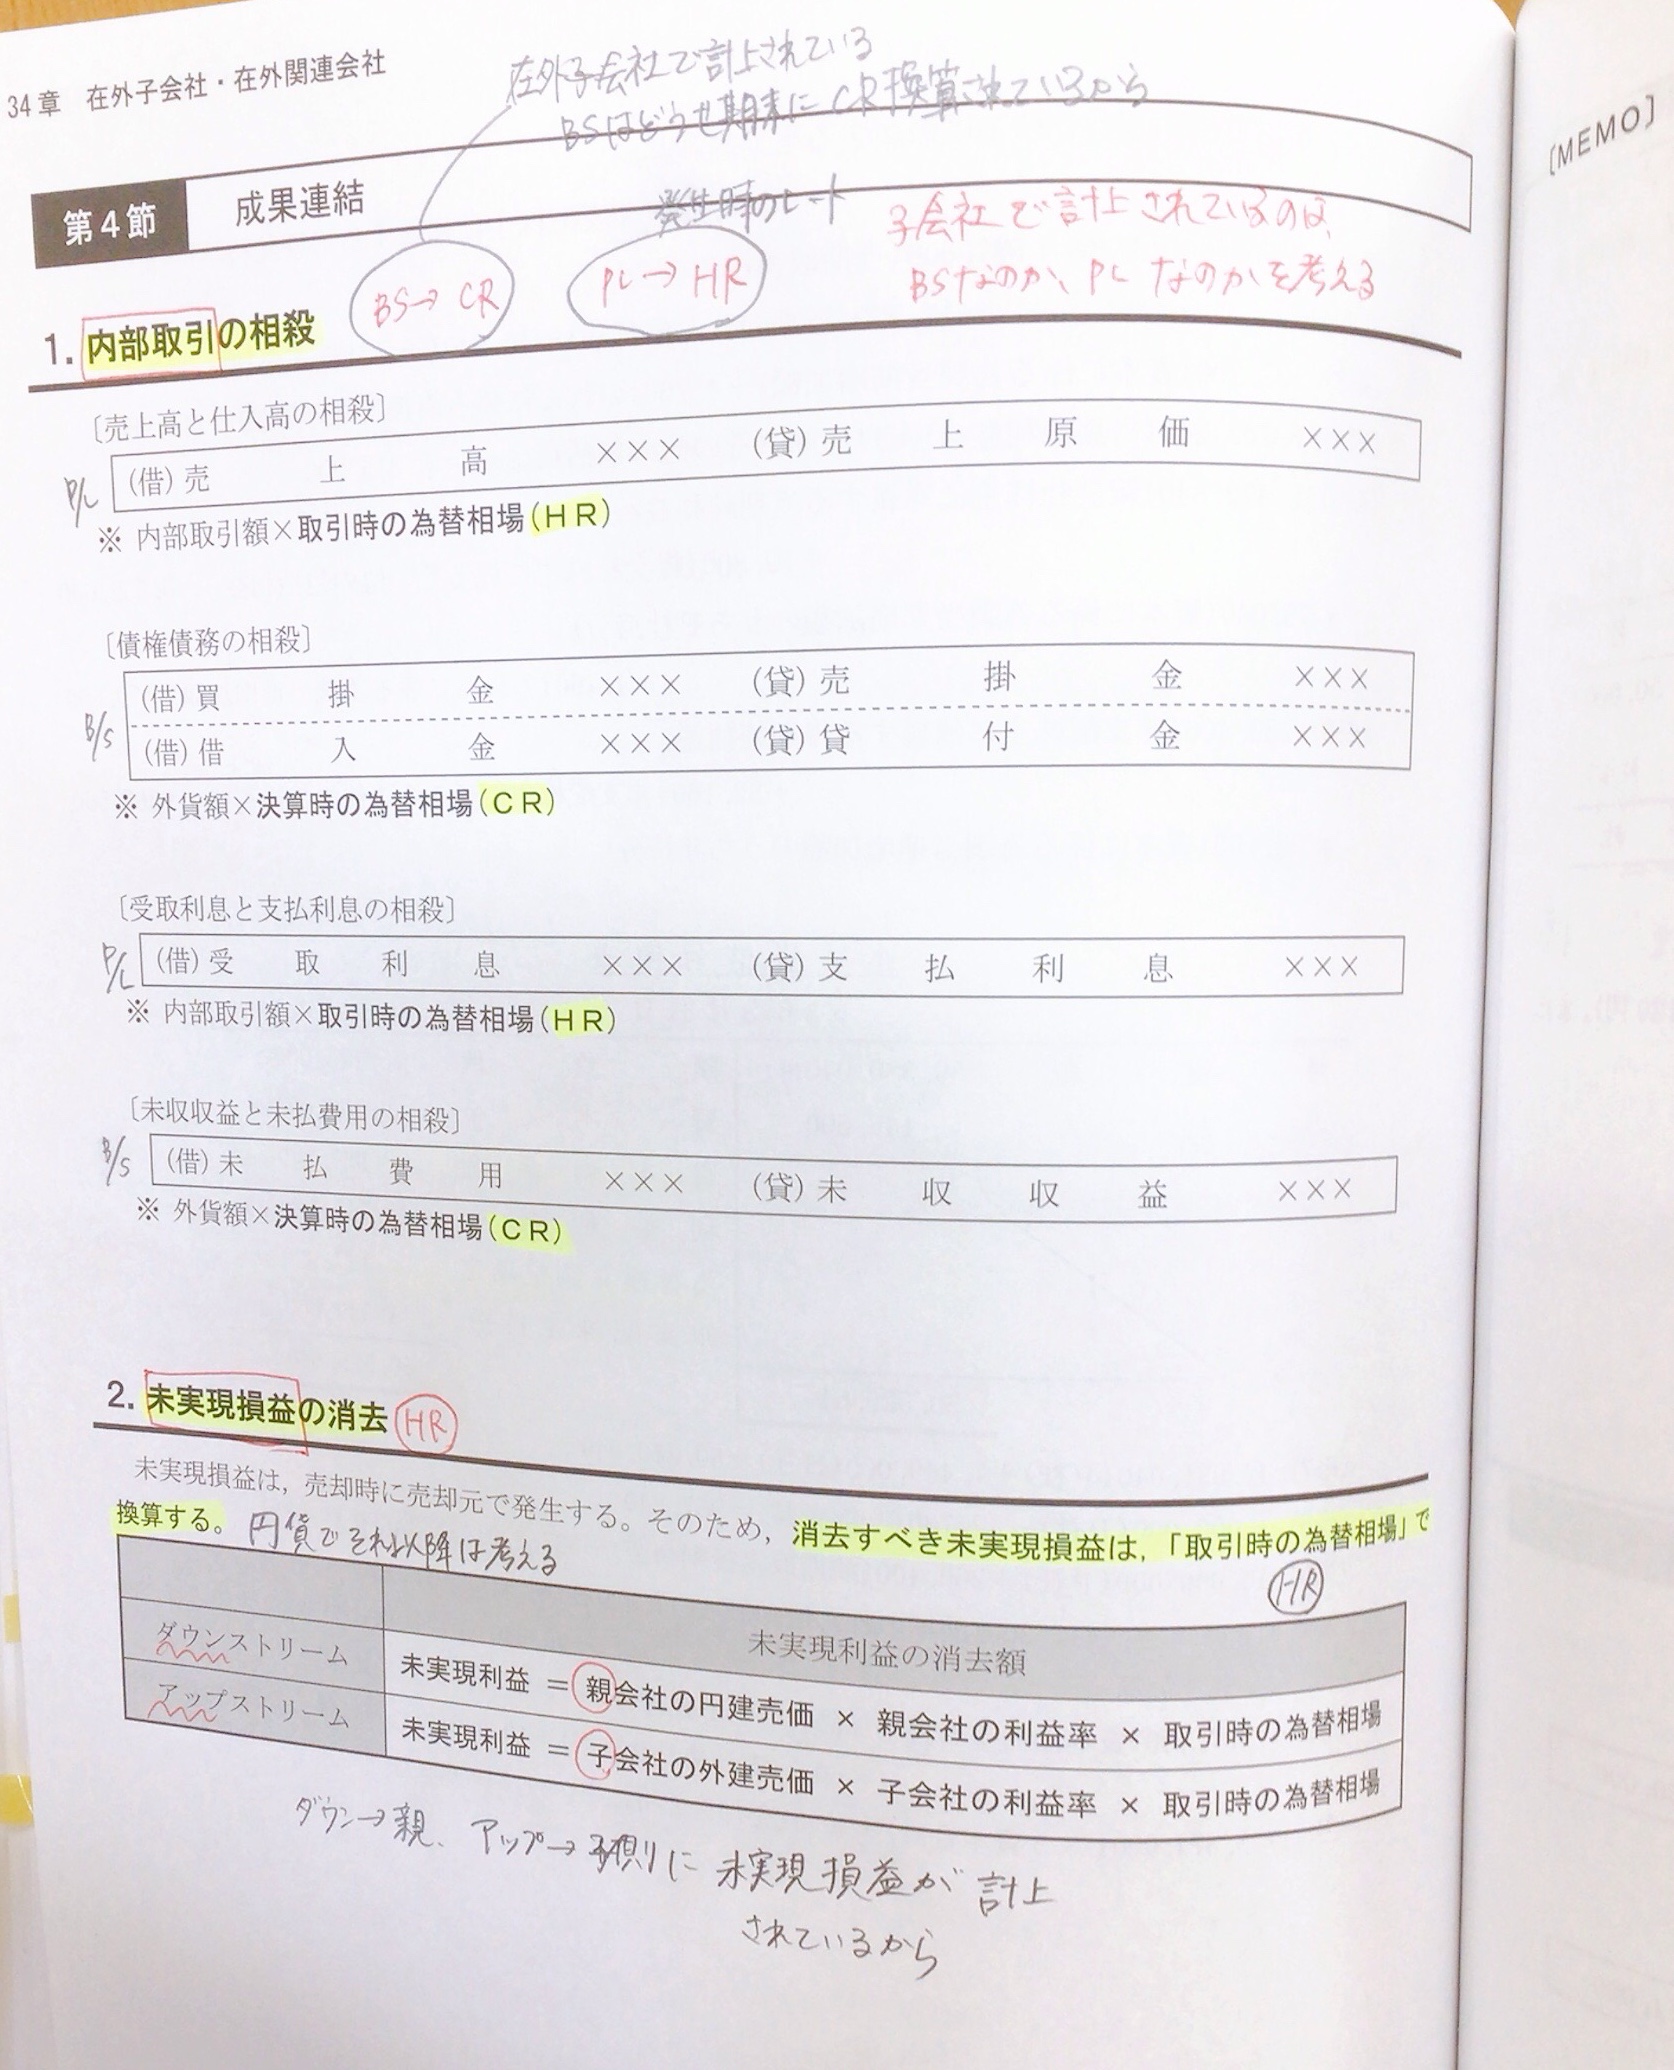 34章 在外子会社・在外関連会社
在外子会社で計上されている
BSはどうせ期末にCR換算されているから
〔MEMO〕
第4節 成果連結
発生時のレート
子会社で計上されているのは、
BSなのか、PLなのかを考える
BS→CR
PL→HR
1. 内部取引の相殺
〔売上高と仕入高の相殺〕
P/L (借)売上高 ××× (貸)売上原価 ×××
※ 内部取引額×取引時の為替相場(HR)
〔債権債務の相殺〕
B/S (借)買掛金 ××× (貸)売掛金 ×××
(借)借入金 ××× (貸)貸付金 ×××
※ 外貨額×決算時の為替相場(CR)
〔受取利息と支払利息の相殺〕
P/L (借)受取利息 ××× (貸)支払利息 ×××
※ 内部取引額×取引時の為替相場(HR)
〔未収収益と未払費用の相殺〕
B/S (借)未払費用 ××× (貸)未収収益 ×××
※ 外貨額×決算時の為替相場(CR)
2. 未実現損益の消去 HR
未実現損益は，売却時に売却元で発生する。そのため，消去すべき未実現損益は，「取引時の為替相場」で
換算する。 円貨でそれ以降は考える
HR
未実現利益の消去額
ダウンストリーム 未実現利益 ＝ 親会社の円建売価 × 親会社の利益率 × 取引時の為替相場
アップストリーム 未実現利益 ＝ 子会社の外建売価 × 子会社の利益率 × 取引時の為替相場
ダウン→親、アップ→子側に 未実現損益が 計上
されているから